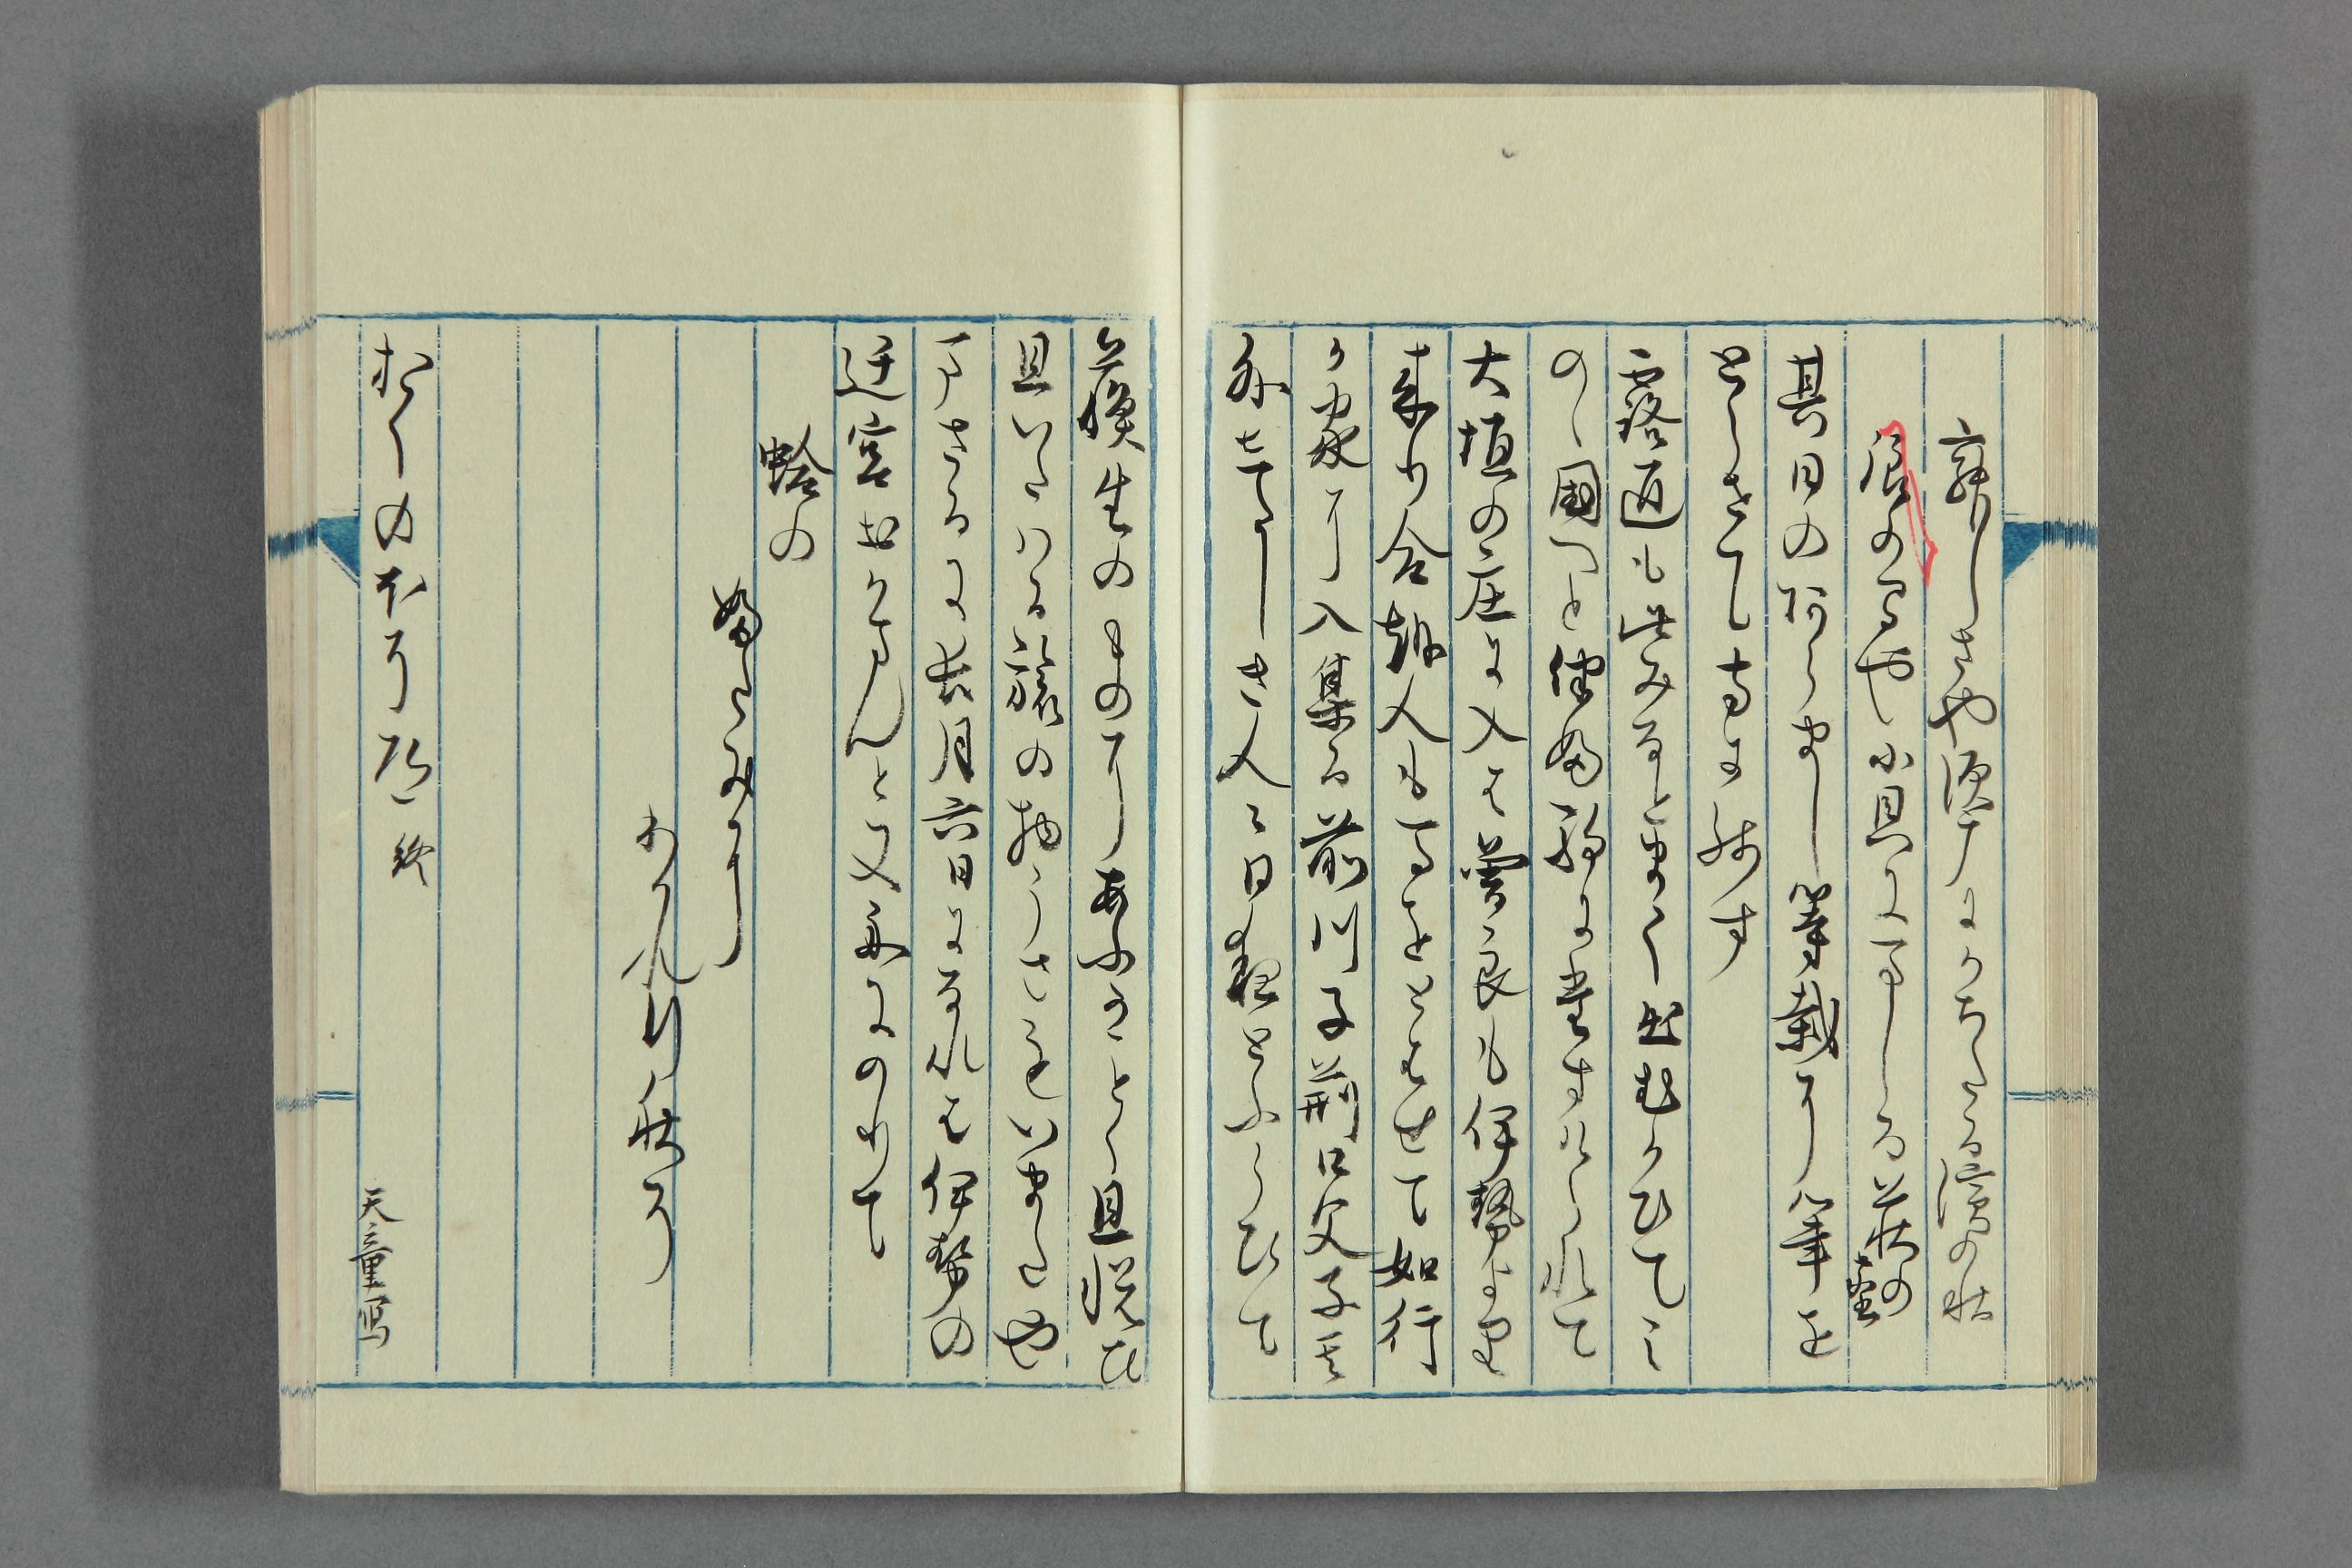 寂しさや須广にかちたる濱の秋
浪の間や小貝にましる萩の塵
其日のあらまし等栽に筆を
とらせて寺に残す
露通も此みなとまて出むかひてみ
のゝ国へと伴ふ駒に書すけられて
大垣の庄に入は曽良も伊勢より
来り合越人も馬をとはせて如行
か家に入集る前川子荊口父子其
外したしき人々日夜とふらひて
蘇生のものにあふかことく且悦ひ
且いたはる旅の物うさもいまたや
まさるに長月六日になれは伊勢の
迁宮おかまんと又舟にのりて
蛤の
ふたみに
わかれ行秋そ
おくのほそ道 終
天童写